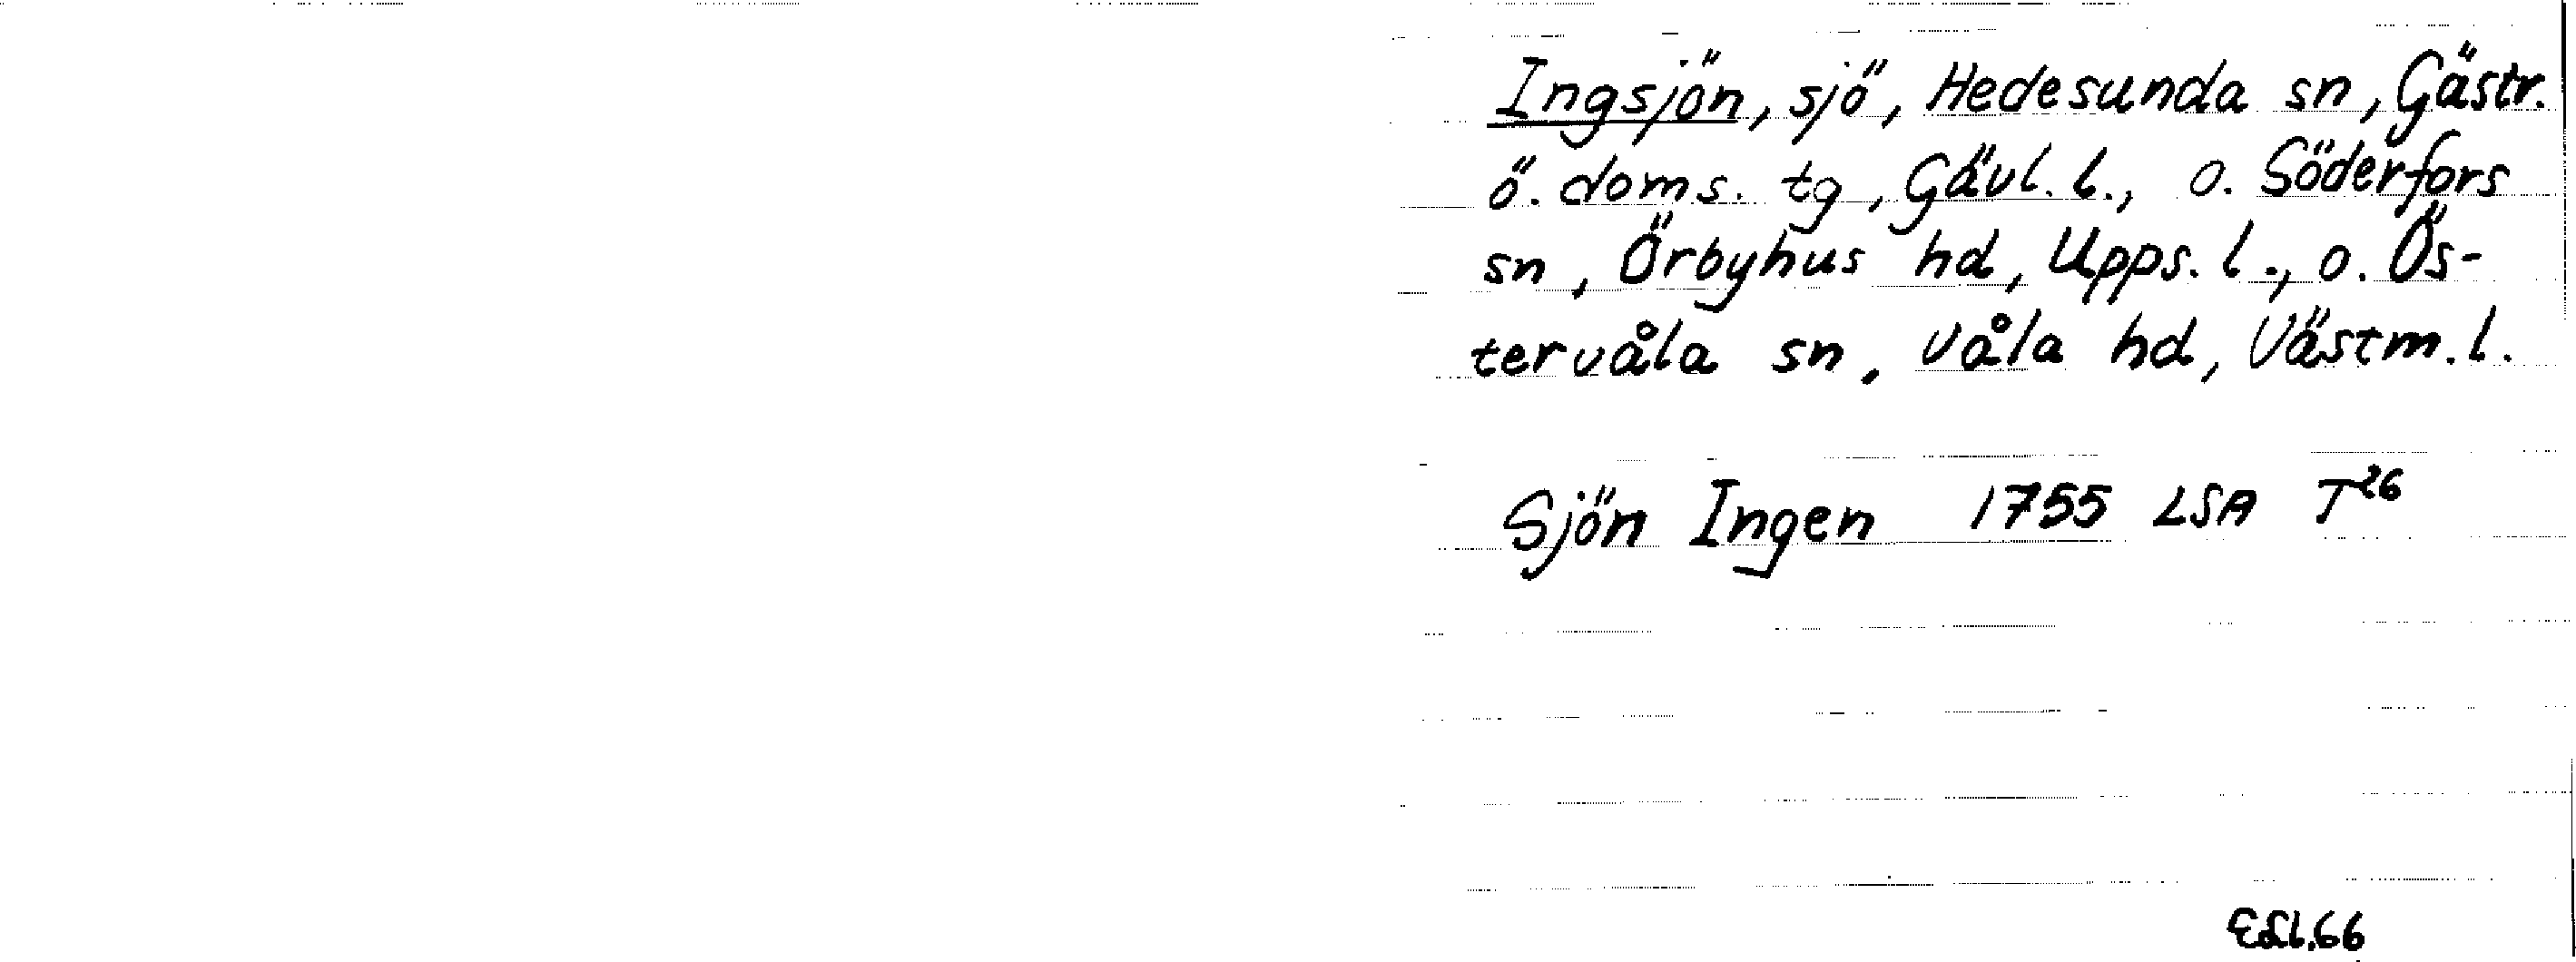 Ingsjön, sjö, Hedesunda sn, Gästr.
ö. doms. tg, Gävl. l., o. Söderfors
sn, Örbyhus hd, Upps. l., o. Ös-
tervåla sn, Våla hd, Västm. l.
Sjön Ingen 1755 LSA T26